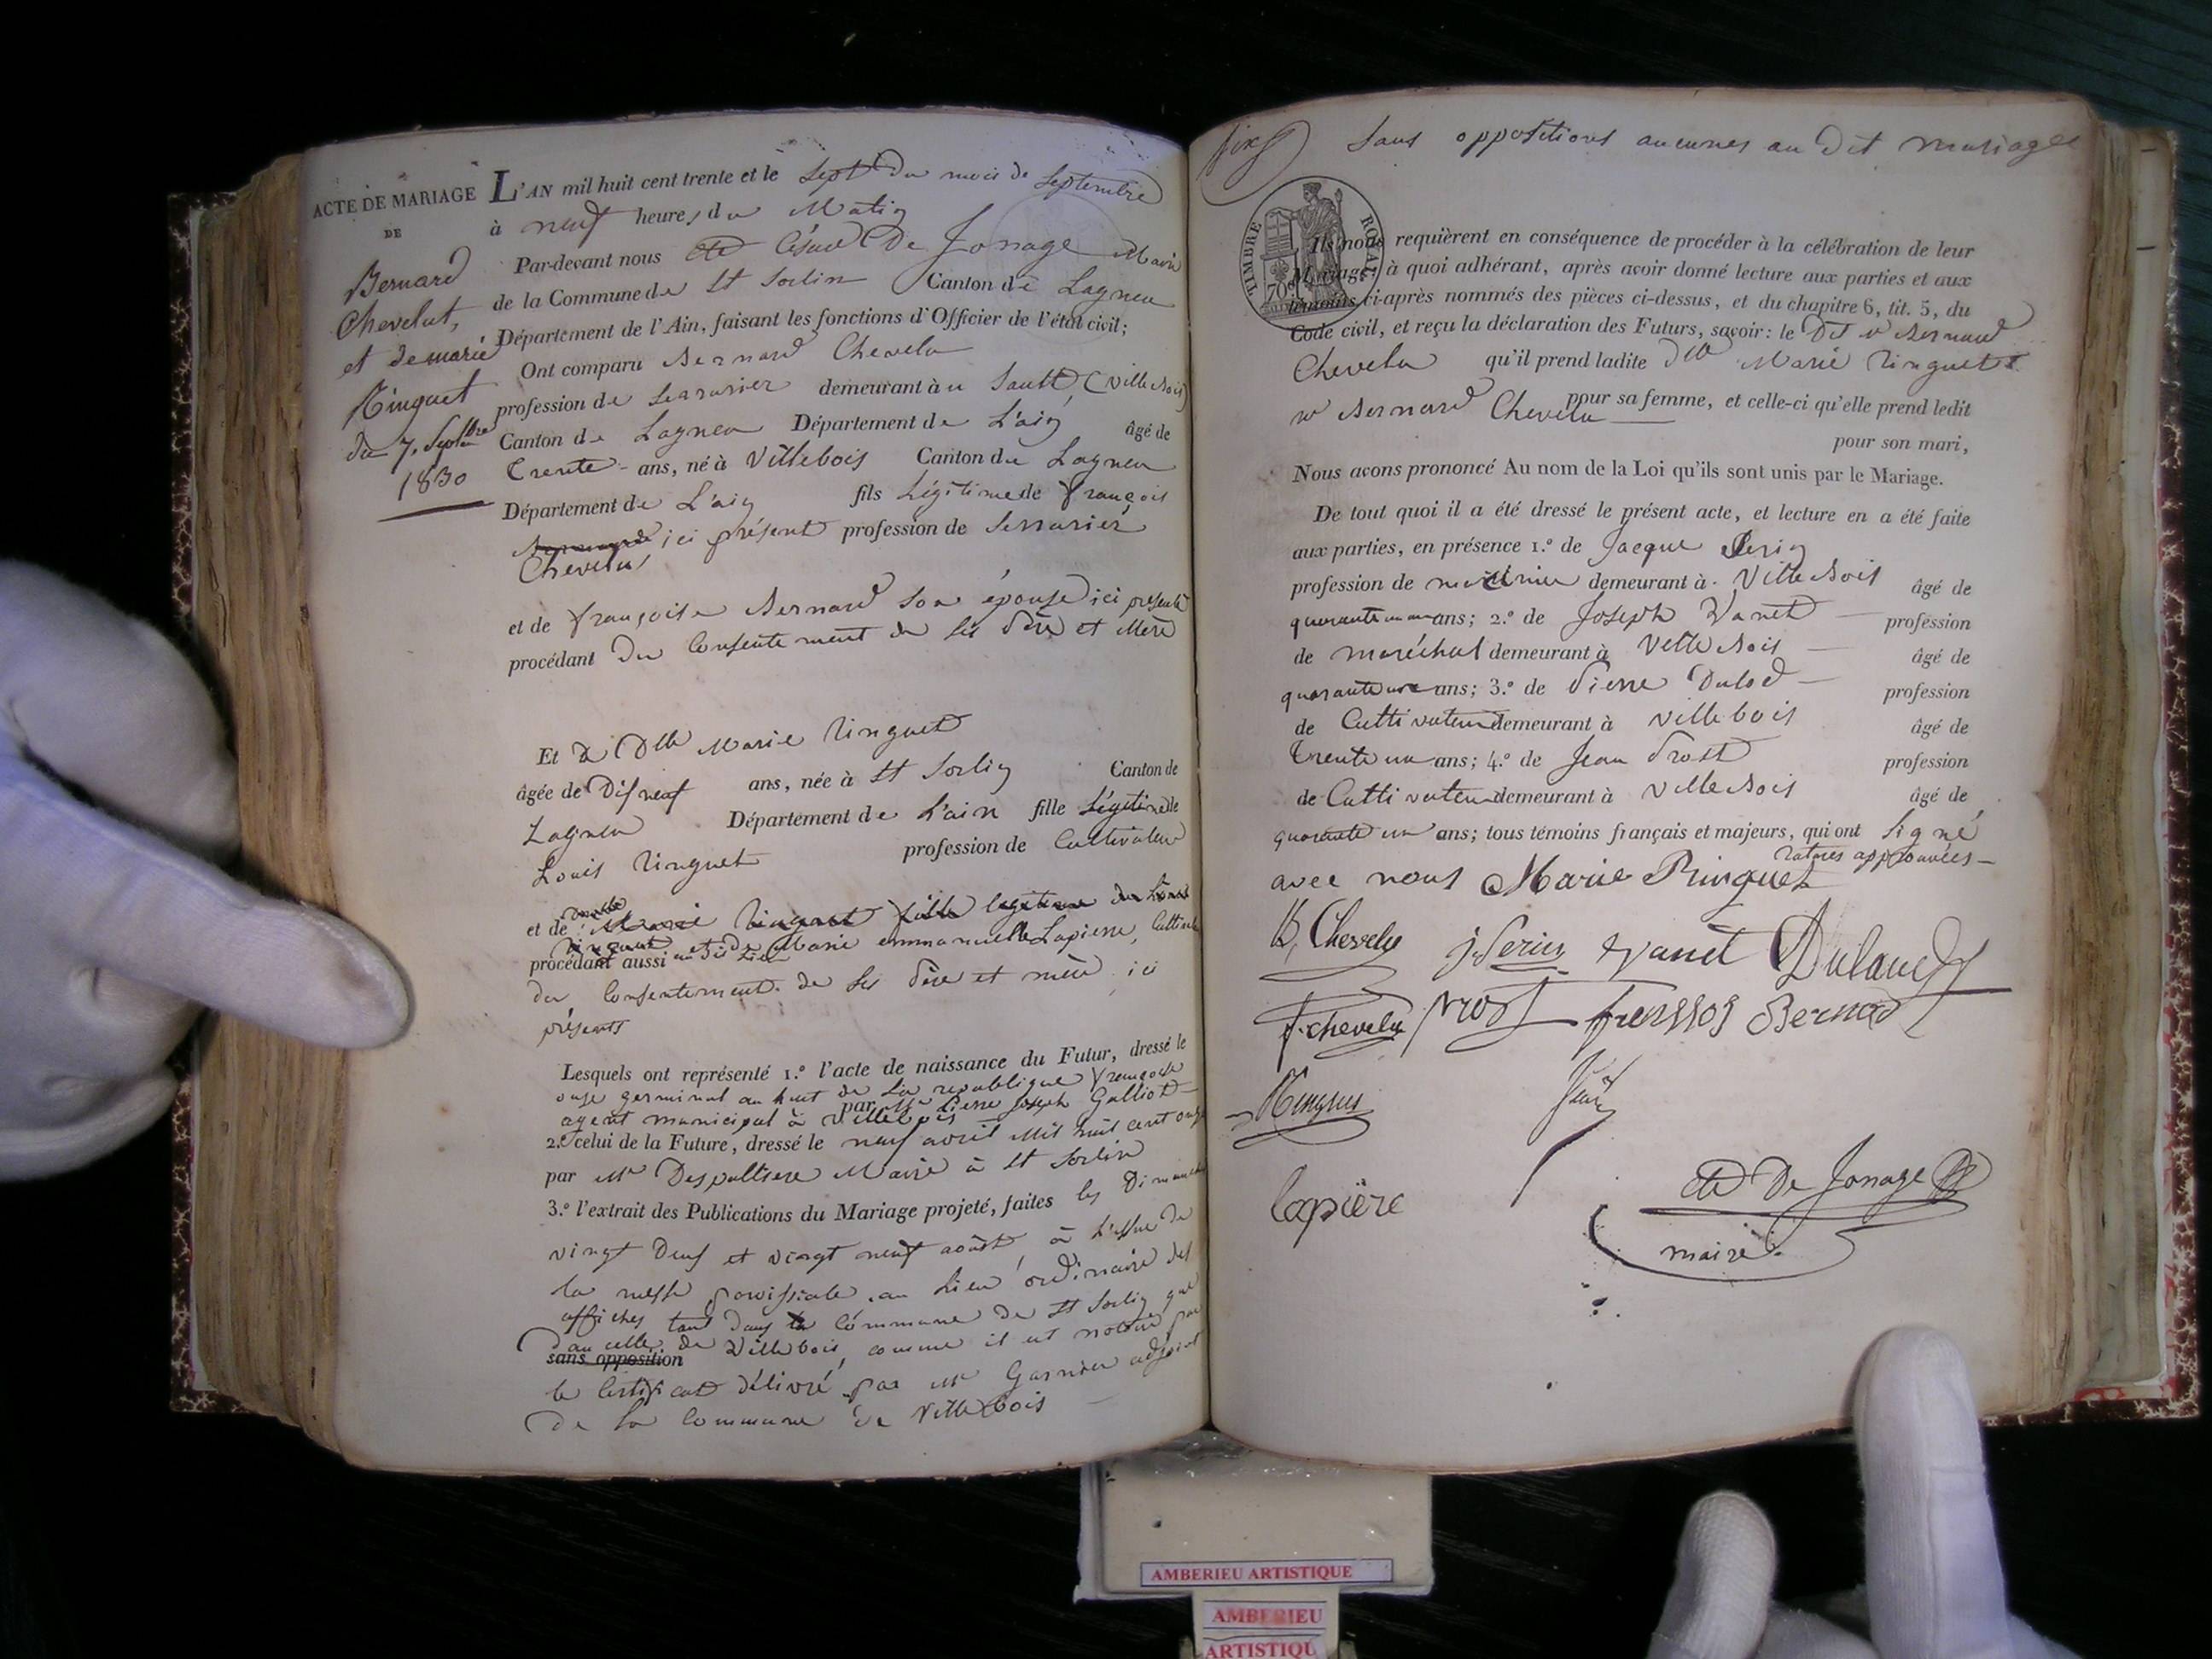 ACTE DE MARIAGE
DE
Bernard
Chevelut,
et de marie
Ringuet
du 7. Septbre
1830
L'AN mil huit cent trente et le sept du mois de septembre
à neuf heures du Matin
Par-devant nous cte César De Jonage Maire
de la Commune de St Sorlin Canton de Lagneu
Département de l'Ain, faisant les fonctions d'Officier de l'état civil;
Ont comparu Bernard Chevelu
profession de serrurier demeurant au Sault, (Villebois)
Canton de Lagneu Département de L'ain âgé de
Trente ans, né à Villebois Canton de Lagneu
Département de L'ain fils Légitime de françois
ici présent profession de Serrurier
Chevelu
et de françoise Bernard son épouse ici présente
procédant du Consentement de ses père et Mère
Et De Dlle Marie Ringuet
âgée de Disneuf ans, née à St Sorlin Canton de
Lagneu Département de L'ain fille Légitime de
Louis Ringuet profession de Cultivateur
et de Marie Ringuet fille legitime de Louis
Ringuet et de Marie emmanuelle Lapierre,
procédant aussi
du Consentement de ses père et mère ici
présents
Lesquels ont représenté 1.° l'acte de naissance du Futur, dressé le
onze germinal an huit de La republique françoise
par Mr Pierre Joseph Galliot
agent municipal à Villebois
2.° celui de la Future, dressé le neuf avril Mil huit cent onze
par Mr Despaltiere Maire à St Sorlin
3.° l'extrait des Publications du Mariage projeté, faites les Dimanches
vingt Deux et vingt neuf août à L'issue de
la messe paroissiale au Lieu ordinaire des
affiches tant Dans la Commune de St Sorlin que
Dan celle de Villebois, comme il est notoire par
sans opposition
le Certificat délivré par Mr Garnier adjoint
de la Commune de Villebois
Sans oppositions aucunes au Dit mariage
TIMBRE ROYAL
70
Ils nous requièrent en conséquence de procéder à la célébration de leur
Mariage; à quoi adhérant, après avoir donné lecture aux parties et aux
témoins ci-après nommés des pièces ci-dessus, et du chapitre 6, tit. 5, du
Code civil, et reçu la déclaration des Futurs, savoir: le Dit Sr Bernard
Chevelu qu'il prend ladite Dlle Marie Ringuet
pour sa femme, et celle-ci qu'elle prend ledit
Sr Bernard Chevelu
pour son mari,
Nous avons prononcé Au nom de la Loi qu'ils sont unis par le Mariage.
De tout quoi il a été dressé le présent acte, et lecture en a été faite
aux parties, en présence 1.° de Jacque Perin
profession de demeurant à Villebois âgé de
quarante un ans; 2.° de Joseph Vanet profession
de maréchal demeurant à Villebois âgé de
quarante un ans; 3.° de Pierre Dulod profession
de Cultivateur demeurant à Villebois âgé de
Trente un ans; 4.° de Jean Prost profession
de Cultivateur demeurant à Villebois âgé de
quarante un ans; tous témoins français et majeurs, qui ont signé
ratures approuvées
avec nous Marie Ringuet
B, Chevelu j. Perin vanet Dulaud
f. chevelu prost Bernard
lapière
cte De Jonage
maire
AMBERIEU ARTISTIQUE
AMBERIEU
ARTISTIQU